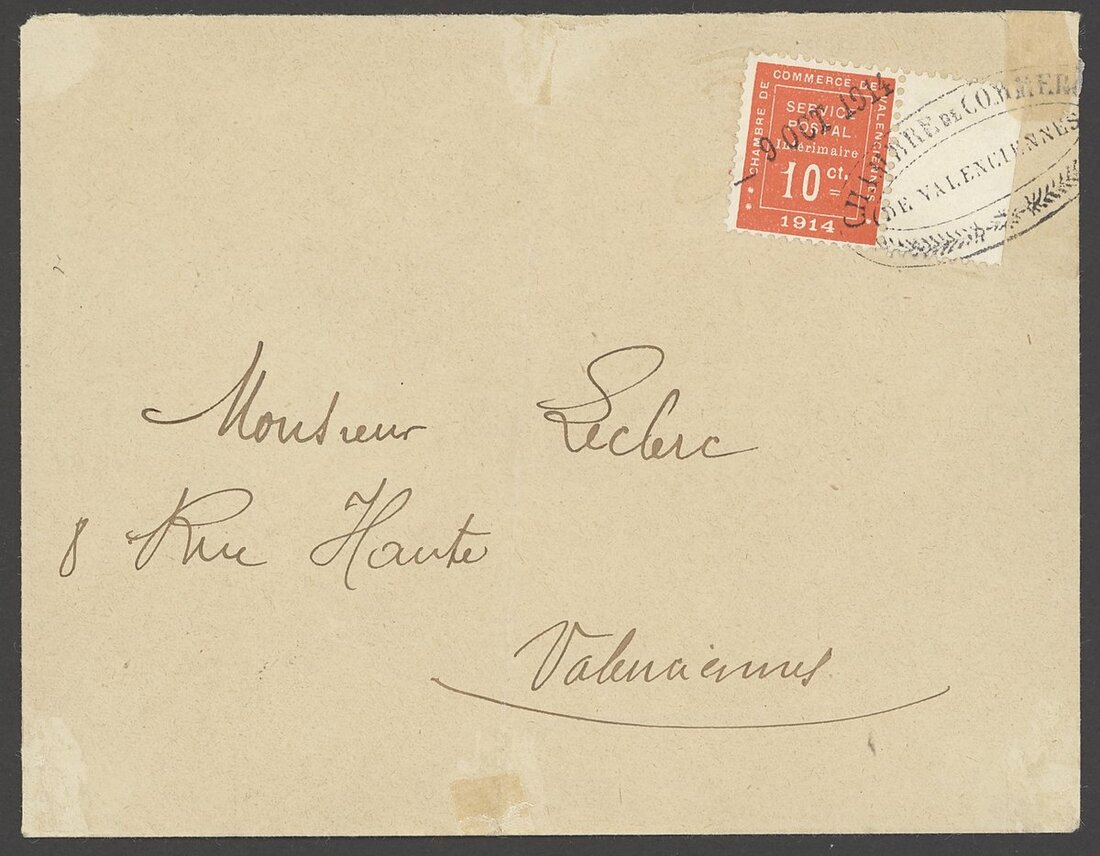 CHAMBRE DE COMMERCE DE VALENCIENNES
SERVICE
POSTAL
Intérimaire
10 ct.
1914
- 9 OCT 1914
CHAMBRE DE COMMERC
DE VALENCIENNES
Monsieur Leclerc
8 Rue Haute
Valenciennes